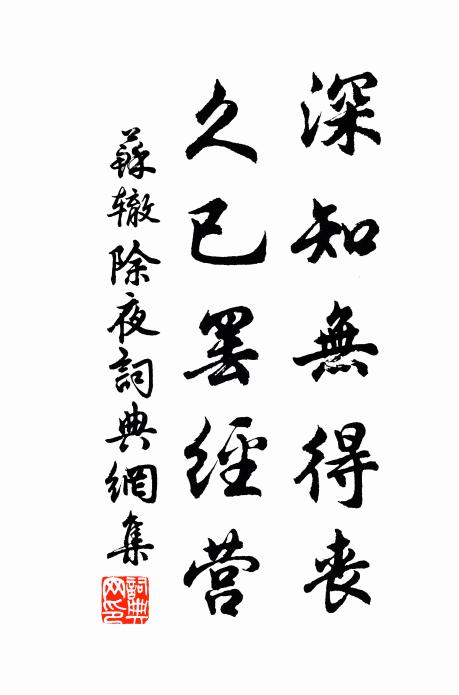 深知無得丧
久已罢經营
蘇辙除夜詞典網集
詞典网印